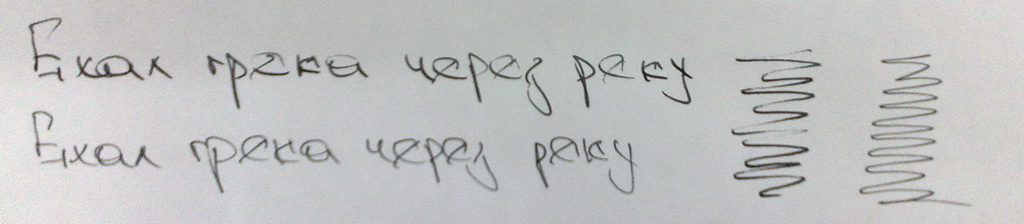 Ехал грека через реку
Ехал грека через реку